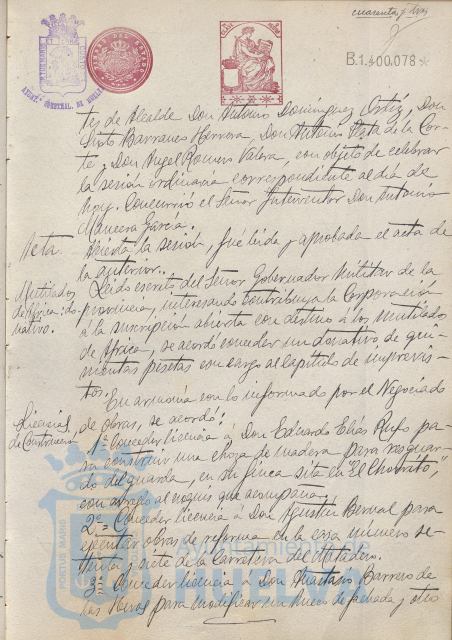 cuarenta y tres
B.1.400,078
tes de Alcalde Don Antonio Dominguez Ortiz, Don
Sixto Barranco Herrera, Don Antonio de la Cor-
te y Don Angel Romero Valera, con objeto de celebrar
la sesión ordinaria correspondiente al dia de
hoy. Concurrió el Señor Interventor Don Antonio
Mancera García.
Acta. Abierta la sesión, fué leida y aprobada el acta de
la anterior.
Mutilados Leido escrito del Señor Gobernador Militar de la
de Africa: do- provincia, interesando contribuya la Corporación
nativo. á la suscripción abierta con destino a los mutilados
de Africa, se acordó conceder un donativo de qui-
nientas pesetas con cargo al capítulo de imprevis-
tos.
En armonía con lo informado por el Negociado
Licencias de obras, se acordó:
de Construcción 1º Conceder licencia á Don Eduardo Elías Rufo pa-
ra construir una choza de madera para resguar-
do del guarda, en su finca sita en "El Chorrito",
con arreglo al croquis que acompaña.
2º = Conceder licencia á Don Agustín Bernal para
ejecutar obras de reforma en la casa número se-
tenta y siete de la Carretera del Matadero.
3º = Conceder licencia á Don Anastasio Barrero de
los para modificar un hueco de fachada y otro
PORTUS MARIS
Ayuntamiento de
HUELVA